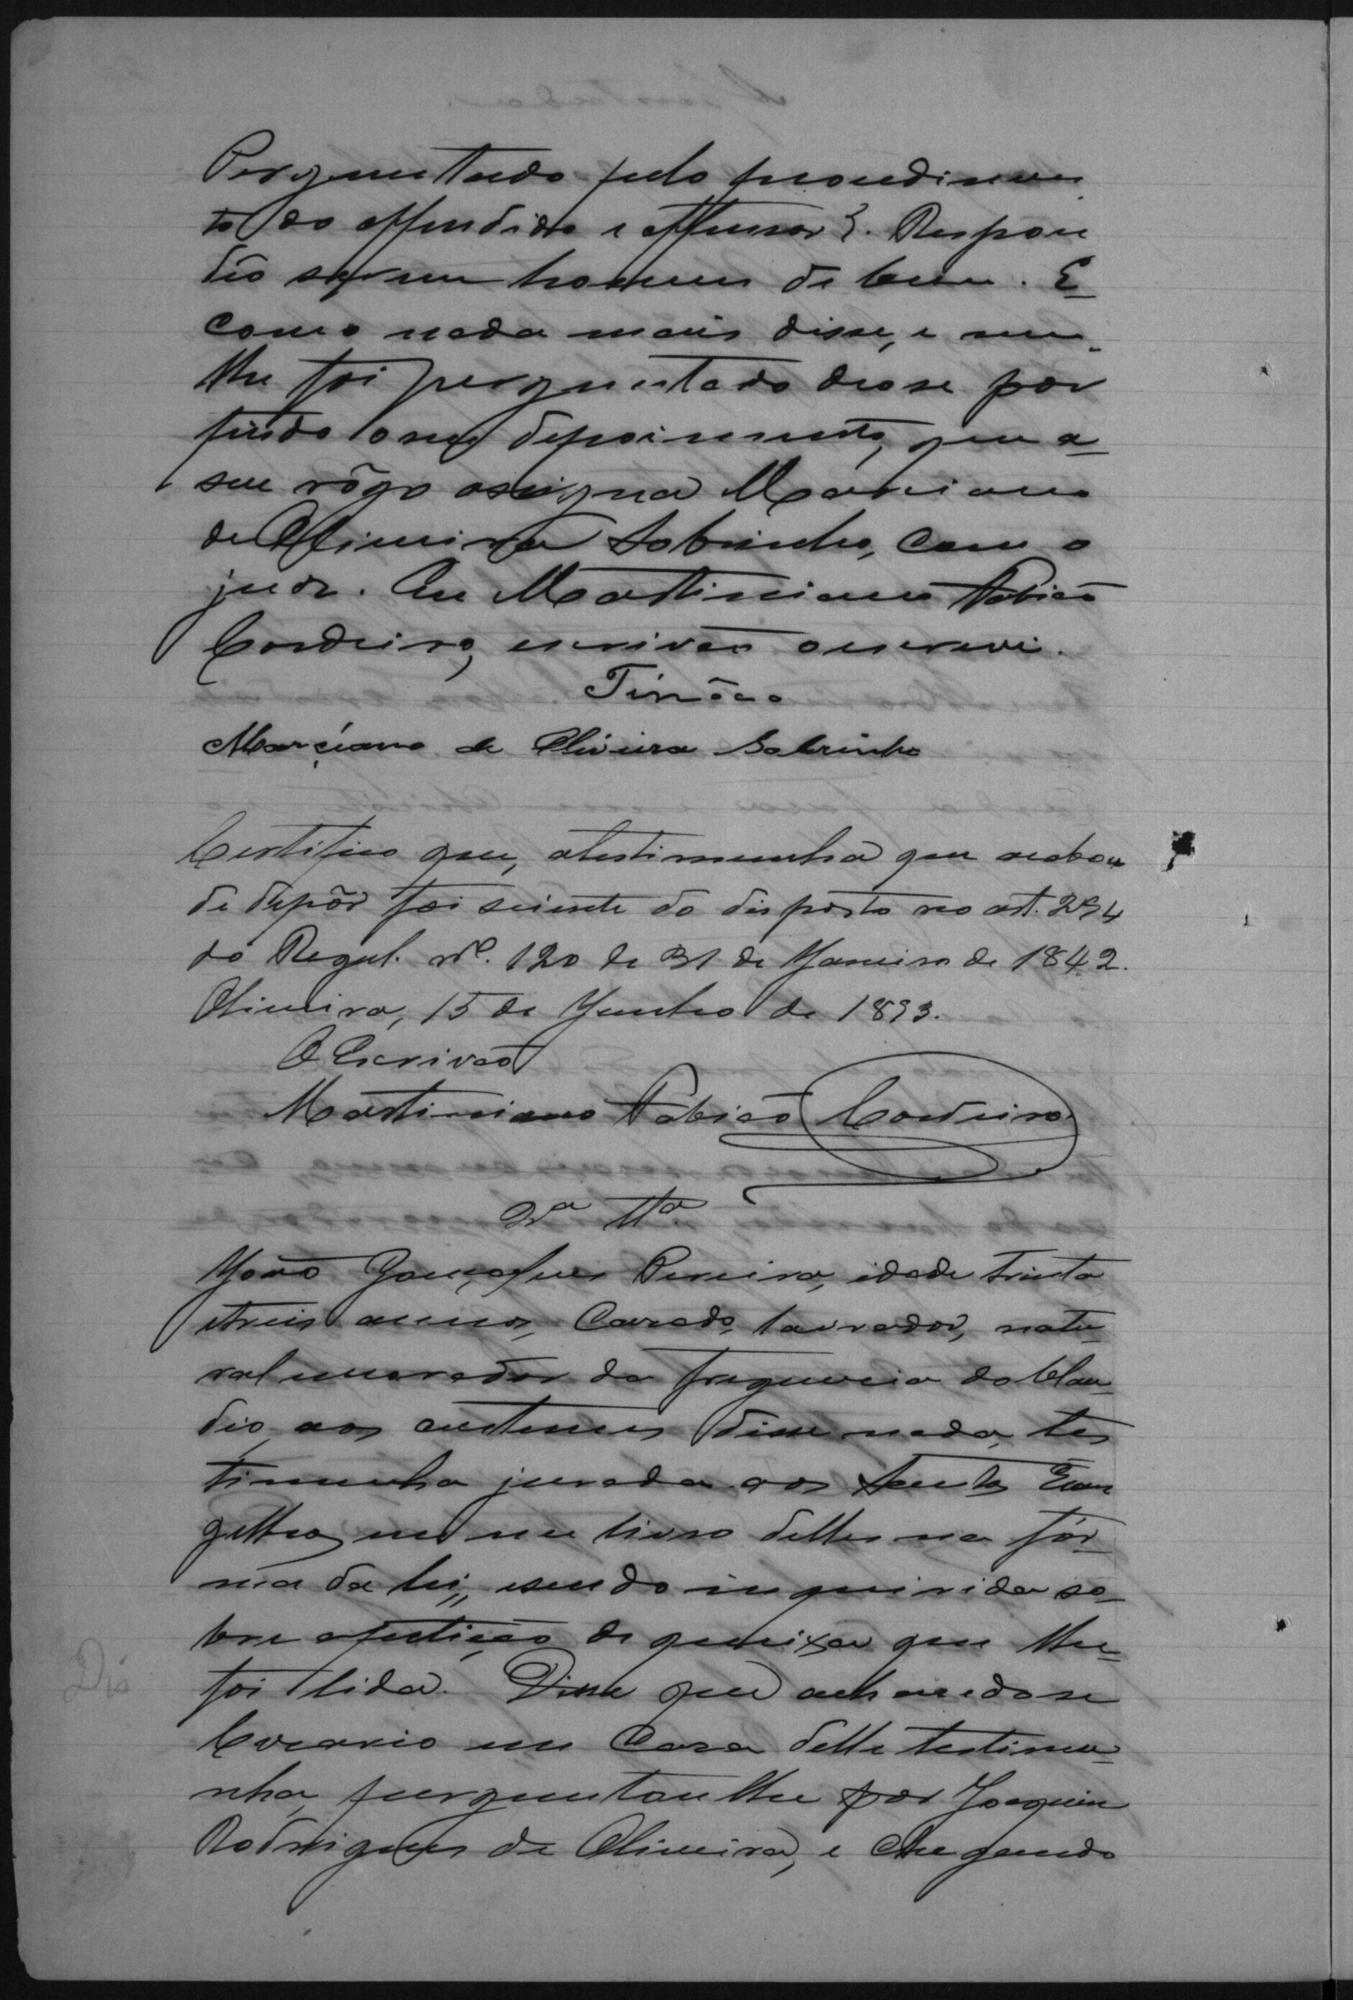 Perguntado pelo procedimen
to do offendido e offensor?. Respon
deo serem homens de bem. E
como nada mais disse, e nem
lhe foi perguntado deose por
findo o seu depoimento, que a
seu rôgo assigna Marciano
de Oliveira Sobrinho, com o
juiz. Eu Martiniano Fabião
Cordeiro, escrivão o escrevi.
Tinôco
Marciano de Oliveira Sobrinho
Certifico que, a testimunha que acabou
de depôr foi sciente do disposto no art. 294
do Regul. nº. 120 de 31 de Janeiro de 1842.
Oliveira, 15 de Junho de 1893.
O Escrivão
Martiniano Fabião Cordeiro
2ª Tª.
João Gonçalves Pereira, idade trinta
e treis annos, Casado, lavrador, natu
ral e morador da freguesia do Clau
dio, aos custumes disse nada, tes
timunha jurada aos Santos Evan
gelhos em um livro delles na fór
ma da lei, e sendo inquirida so
bre a petição de queixa que lhe
foi lida. Disse que achando se
em Casa delle testimu
nha, perguntou lhe por Joaquim
Rodrigues de Oliveira, e chegando
Dis